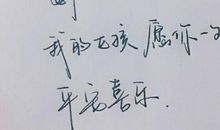 我的女孩 愿你一
平安喜乐.